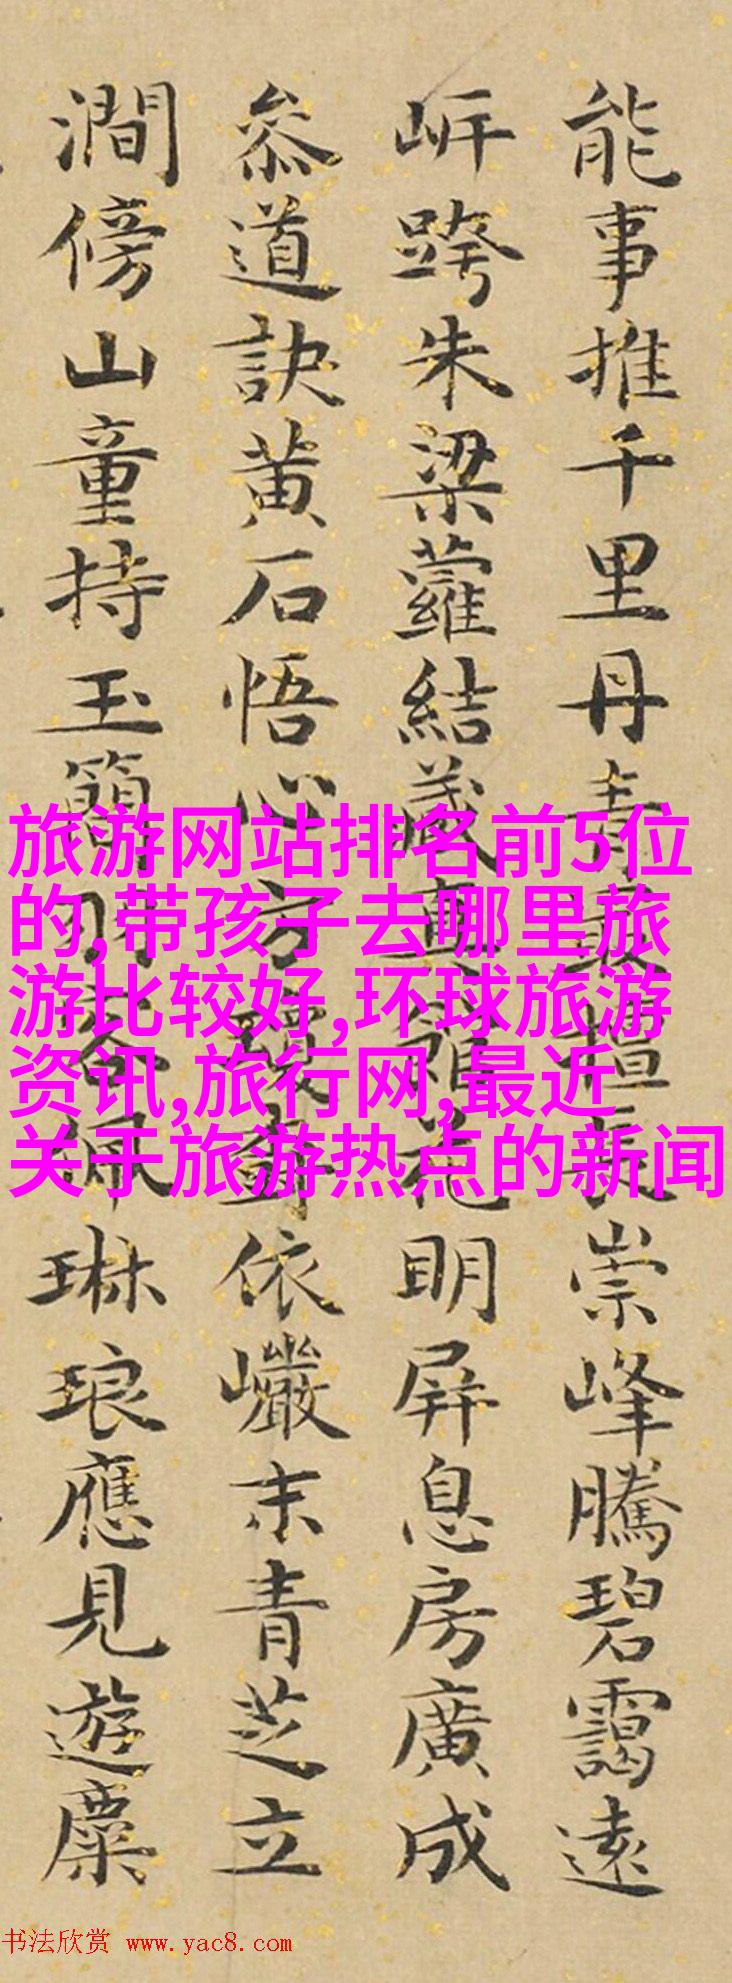 能事推千里丹青最擅長崇峰騰碧靄遠
岍跨朱梁蘿結歲寒館花明屏息房廣成
叅道訣黄石悟心方聲依巘末青芝立
澗傍山童持玉簡羽客佩琳琅應見遊麋
旅游网站排名前5位
的,带孩子去哪里旅
游比较好,环球旅游
资讯,旅行网,最近
关于旅游热点的新闻
书法欣赏 www.yac8.com